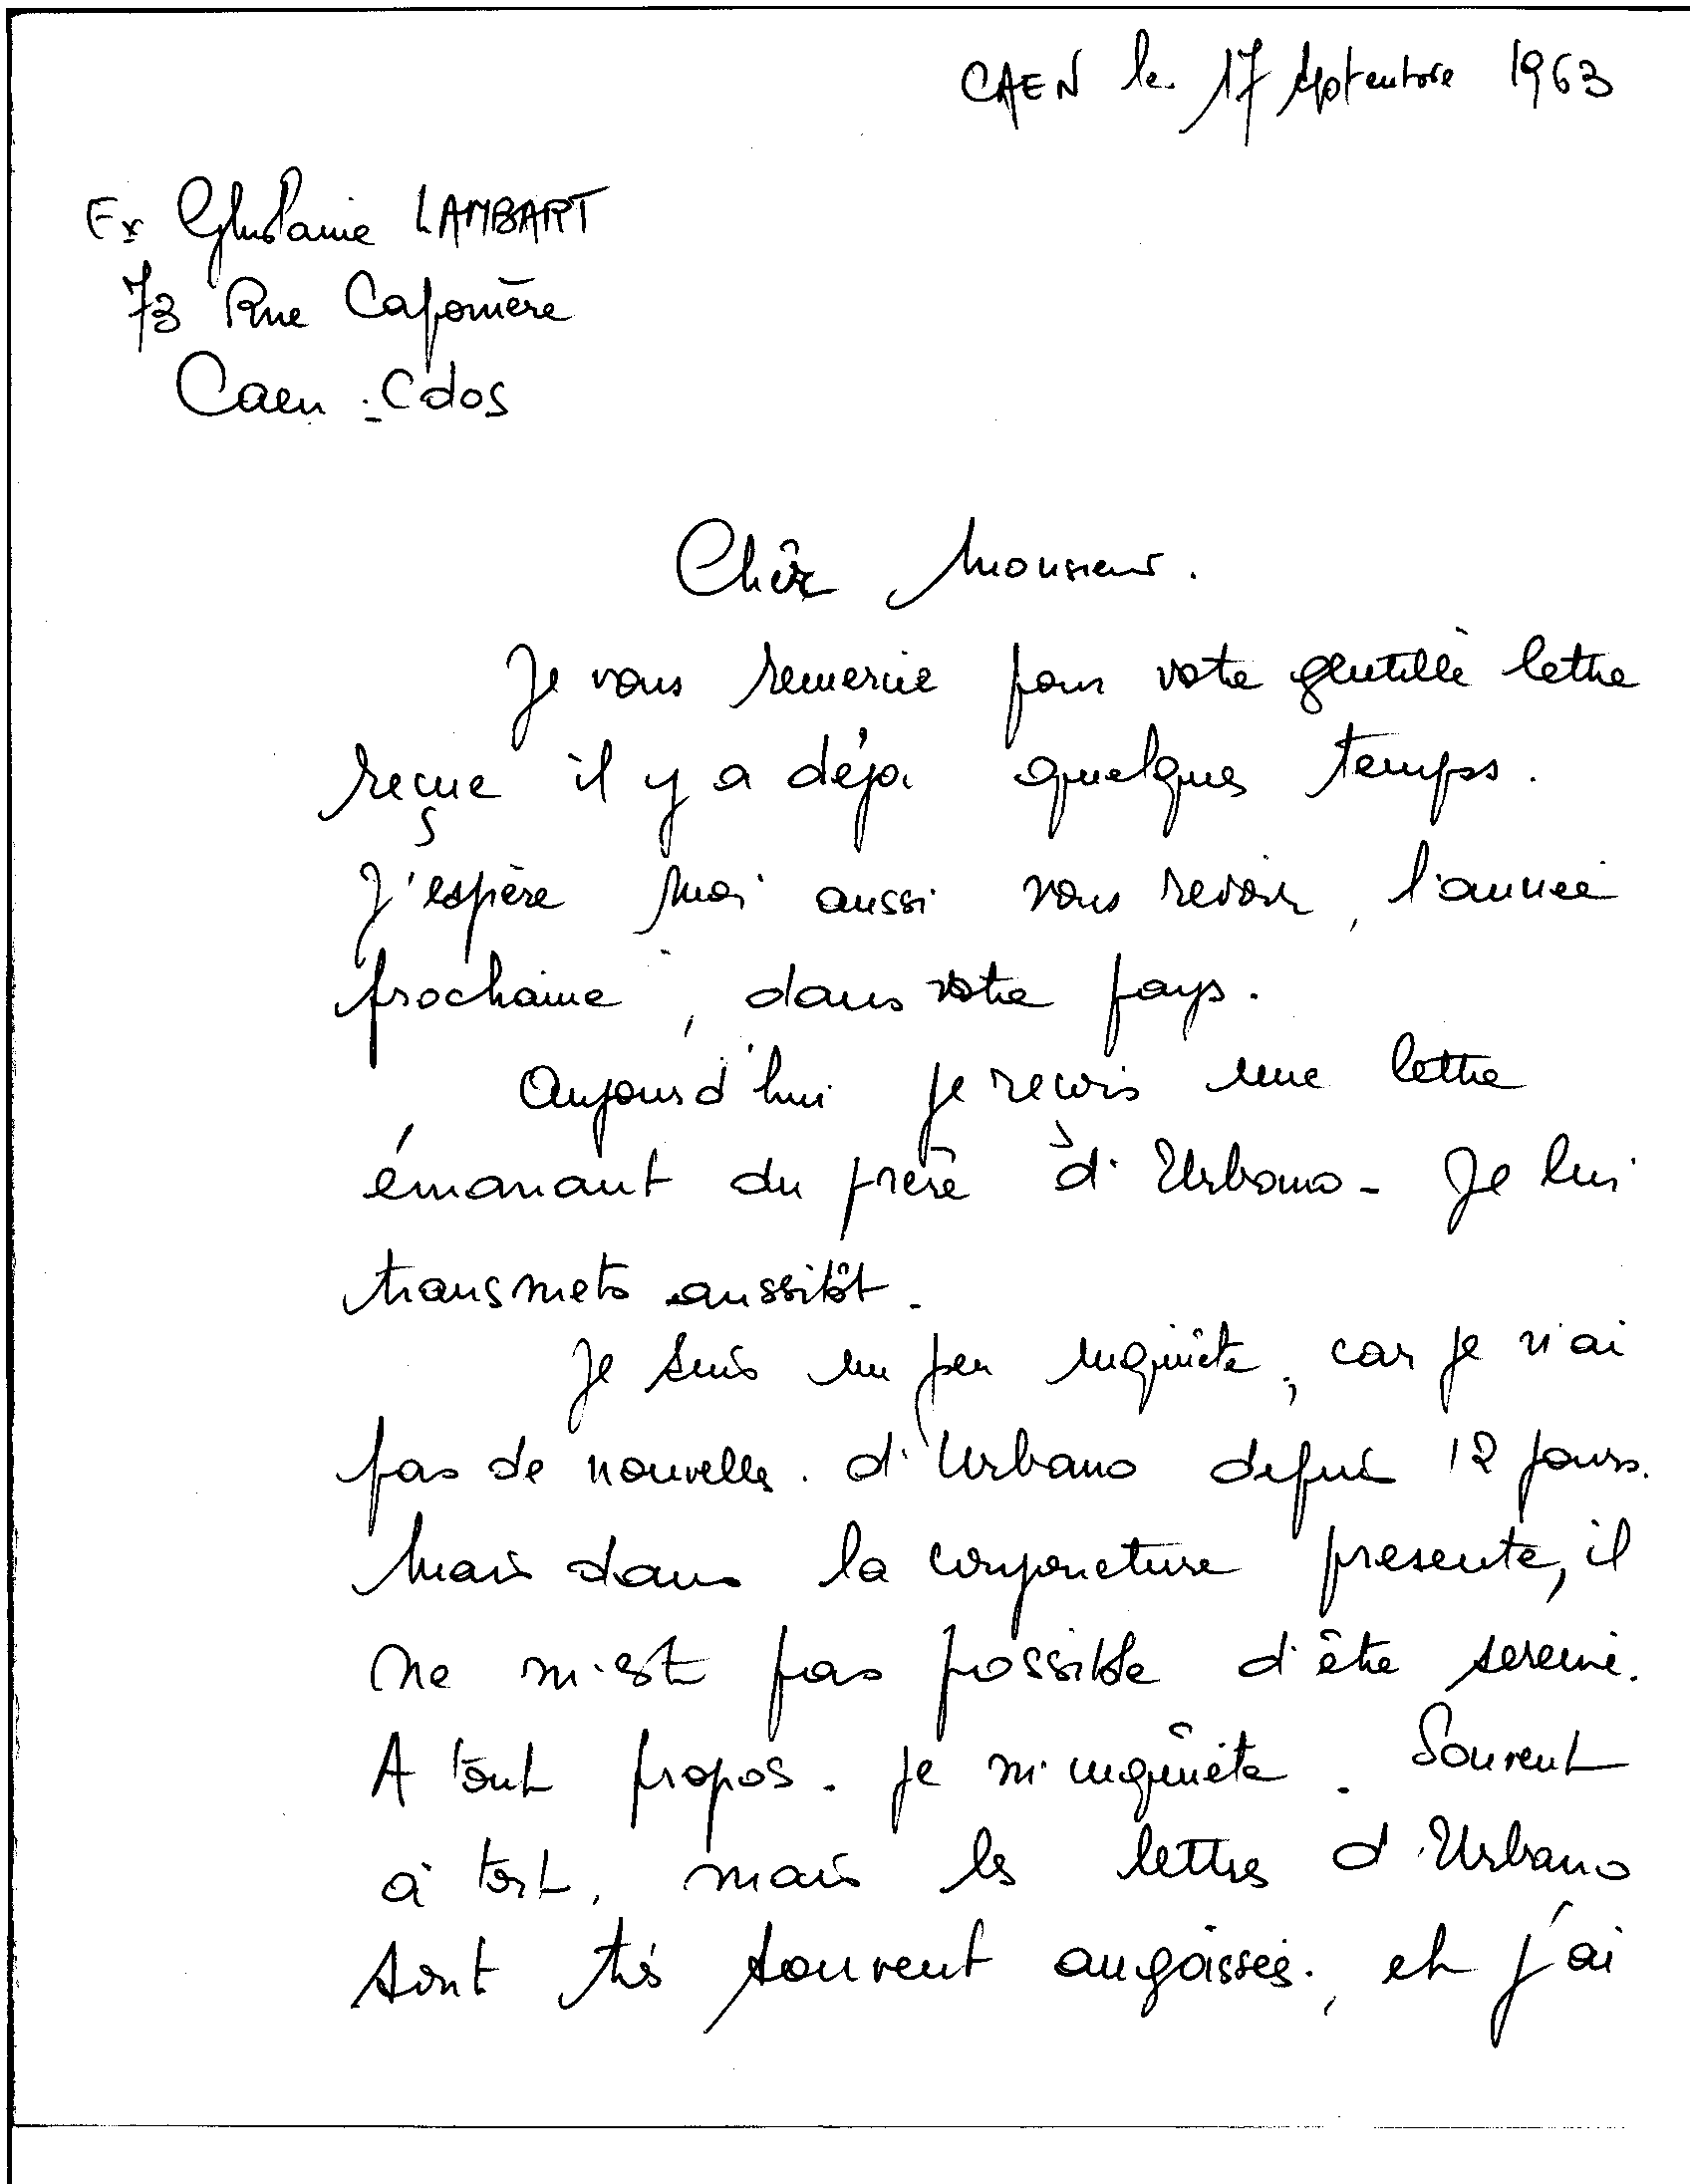 CAEN le 17 septembre 1963
Ex Ghislaine LAMBART
73 Rue Caponière
Caen - Cdos
Cher Monsieur.
Je vous remercie pour votre gentille lettre
reçue il y a déjà quelques temps.
J'espère moi aussi vous revoir, l'année
prochaine, dans votre pays.
Aujourd'hui je reçois une lettre
émanant du frère d'Urbano - Je lui
transmets aussitôt.
Je suis un peu inquiète, car je n'ai
pas de nouvelles d'Urbano depuis 12 jours.
Mais dans la conjoncture présente, il
ne m'est pas possible d'être sereine.
A tout propos. je m'inquiète. Souvent
à tort, mais les lettres d'Urbano
sont très souvent angoissées, et j'ai